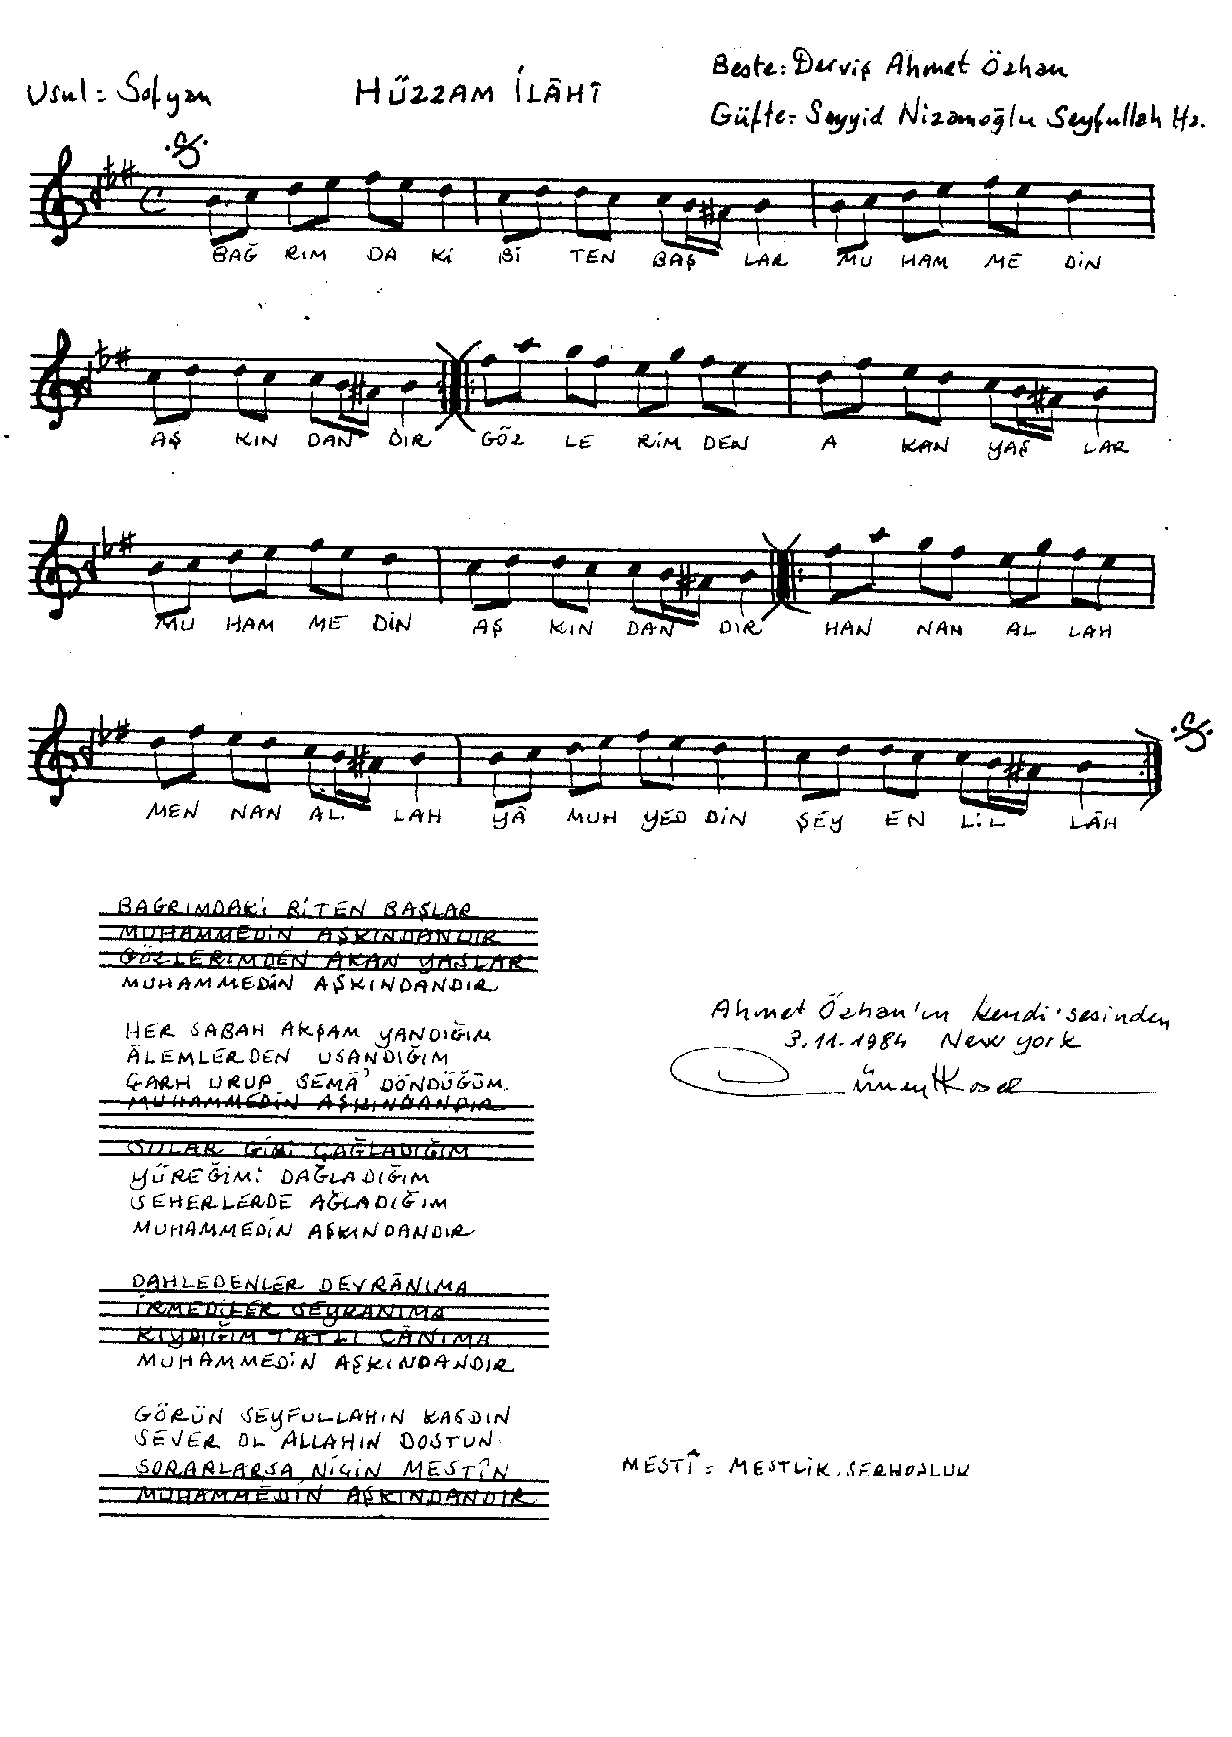 Usul = Sofyan
HÜZZAM İLÂHÎ
Beste: Derviş Ahmet Özhan
Güfte: Seyyid Nizamoğlu Seyfullah Hz.
BAĞ RIM DA Kİ Bİ TEN BAŞ LAR MU HAM ME DİN
AŞ KIN DAN DIR GÖZ LE RİM DEN A KAN YAŞ LAR
MU HAM ME DİN AŞ KIN DAN DIR HAN NAN AL LAH
MEN NAN AL LAH YÂ MUH YED DİN ŞEY EN LİL LÂH
BAĞRIMDAKİ BİTEN BAŞLAR
MUHAMMEDİN AŞKINDANDIR
GÖZLERİMDEN AKAN YAŞLAR
MUHAMMEDİN AŞKINDANDIR
HER SABAH AKŞAM YANDIĞIM
ÂLEMLERDEN USANDIĞIM
ÇARH URUP SEMÂ' DÖNDÜĞÜM
MUHAMMEDİN AŞKINDANDIR
SULAR GİBİ ÇAĞLADIĞIM
YÜREĞİMİ DAĞLADIĞIM
SEHERLERDE AĞLADIĞIM
MUHAMMEDİN AŞKINDANDIR
DAHLEDENLER DEVRÂNIMA
İRMEDİLER SEYRANIMA
KIYDIĞIM TATLI CÂNIMA
MUHAMMEDİN AŞKINDANDIR
GÖRÜN SEYFULLAHIN KASDIN
SEVER OL ALLAHIN DOSTUN
SORARLARSA NİÇİN MESTÎN
MUHAMMEDİN AŞKINDANDIR
Ahmet Özhan'ın kendi sesinden
3.11.1984 New york
MESTÎ = MESTLİK, SERHOŞLUK